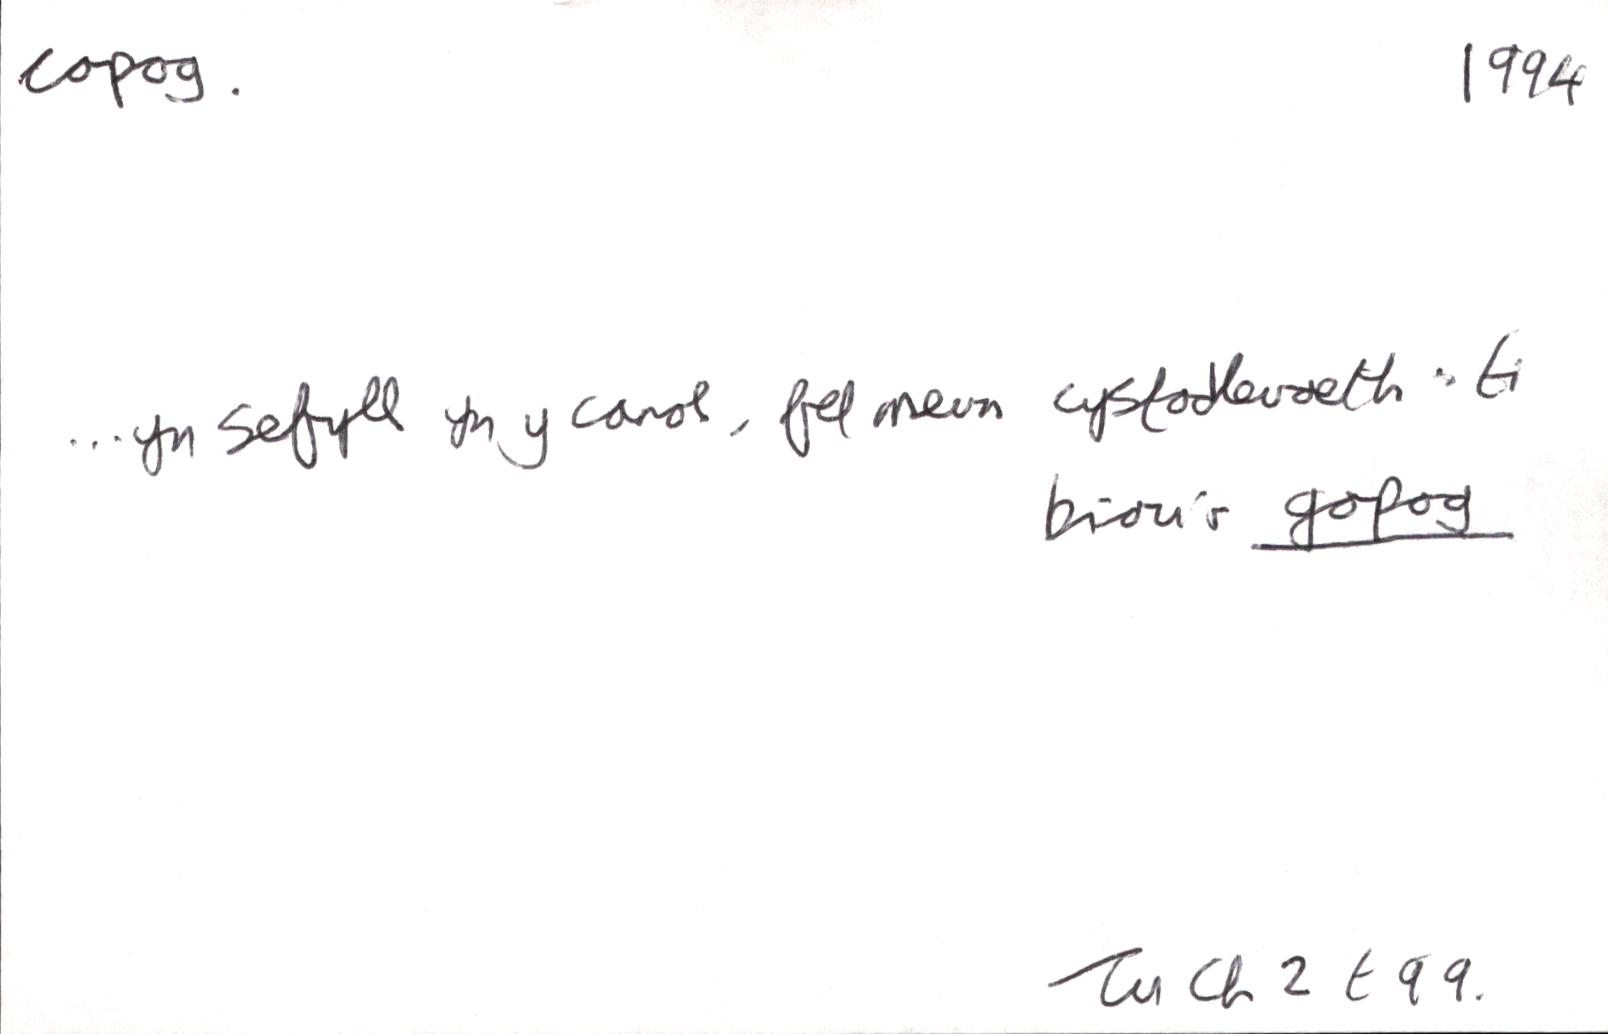 copog. 1994
...yn sefyll yn y canol, fel mewn cystodlevaeth · ti
biau'r gopog
Tu Ch 2 t 99.